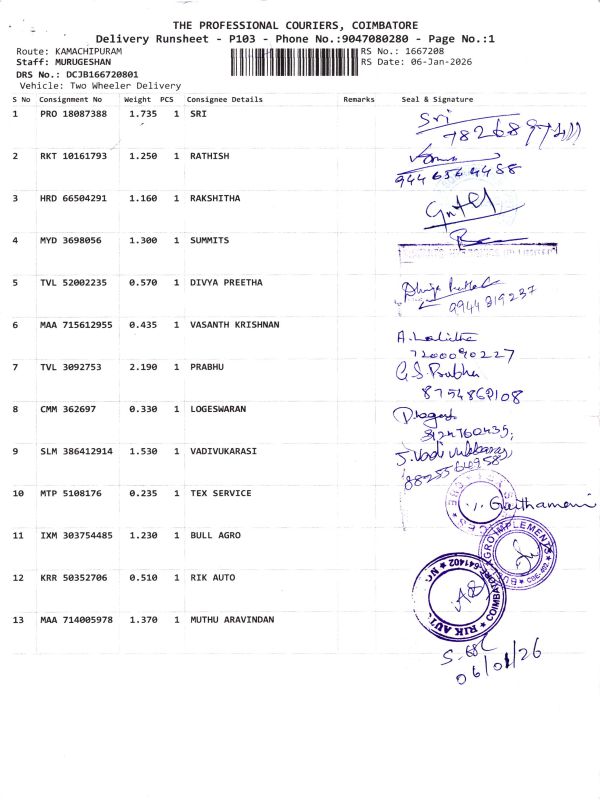 THE PROFESSIONAL COURIERS, COIMBATORE
Delivery Runsheet - P103 - Phone No.:9047080280 - Page No.:1
Route: KAMACHIPURAM
RS No.: 1667208
Staff: MURUGESHAN
RS Date: 06-Jan-2026
DRS No.: DCJB166720801
Vehicle: Two Wheeler Delivery
S No Consignment No Weight PCS Consignee Details Remarks Seal & Signature
1 PRO 18087388 1.735 1 SRI Sri
2 RKT 10161793 1.250 1 RATHISH
3 HRD 66504291 1.160 1 RAKSHITHA
4 MYD 3698056 1.300 1 SUMMITS
5 TVL 52002235 0.570 1 DIVYA PREETHA
9944819237
6 MAA 715612955 0.435 1 VASANTH KRISHNAN A. Lalitha
7200090227
7 TVL 3092753 2.190 1 PRABHU G.S. Prabhu
8754862108
8 CMM 362697 0.330 1 LOGESWARAN
9 SLM 386412914 1.530 1 VADIVUKARASI
8825564958
10 MTP 5108176 0.235 1 TEX SERVICE
11 IXM 303754485 1.230 1 BULL AGRO AGRO IMPLEMENTS
12 KRR 50352706 0.510 1 RIK AUTO COIMBATORE-641402 RIK AUTO
13 MAA 714005978 1.370 1 MUTHU ARAVINDAN
06/01/26